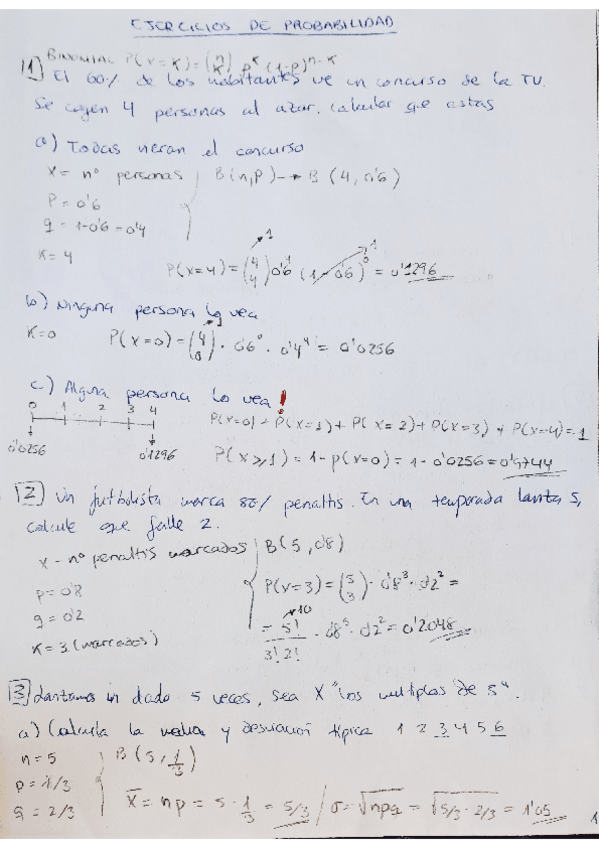 EJERCICIOS DE PROBABILIDAD
BINOMIAL P(x=k) = (n k) p^k (1-p)^n-k
1) El 60% de los habitantes ve un concurso de la TV.
Se cogen 4 personas al azar, calcular que estas
a) Todas vieran el concurso
X = nº personas | B(n,p) → B (4, 0'6)
P = 0'6
q = 1-0'6 = 0'4
K = 4
P(x=4) = (4 4) 0'6^4 (1-0'6)^0 = 0'1296
b) Ninguna persona lo vea
K=0 P(x=0) = (4 0) · 0'6^0 · 0'4^4 = 0'0256
c) Alguna persona lo vea !
0 1 2 3 4
0'0256 0'1296
P(x=0) + P(x=1) + P(x=2) + P(x=3) + P(x=4) = 1
P(x⩾1) = 1 - p(x=0) = 1 - 0'0256 = 0'9744
2) Un futbolista marca 80% penaltis. En una temporada lanza 5,
calcule que falle 2.
x - nº penaltis marcados | B(5, 0'8)
p = 0'8
q = 0'2
K = 3 (marcados)
P(x=3) = (5 3) · 0'8^3 · 0'2^2 =
= 5! / 3! 2! · 0'8^3 · 0'2^2 = 0'2048
10
3) Lanzamos un dado 5 veces, sea X "los multiplos de 3".
a) Calcula la media y desviación típica 1 2 3 4 5 6
n = 5 | B(5, 1/3)
p = 1/3
q = 2/3
x̄ = np = 5 · 1/3 = 5/3 / σ = √npq = √5/3 · 2/3 = 1'05
1